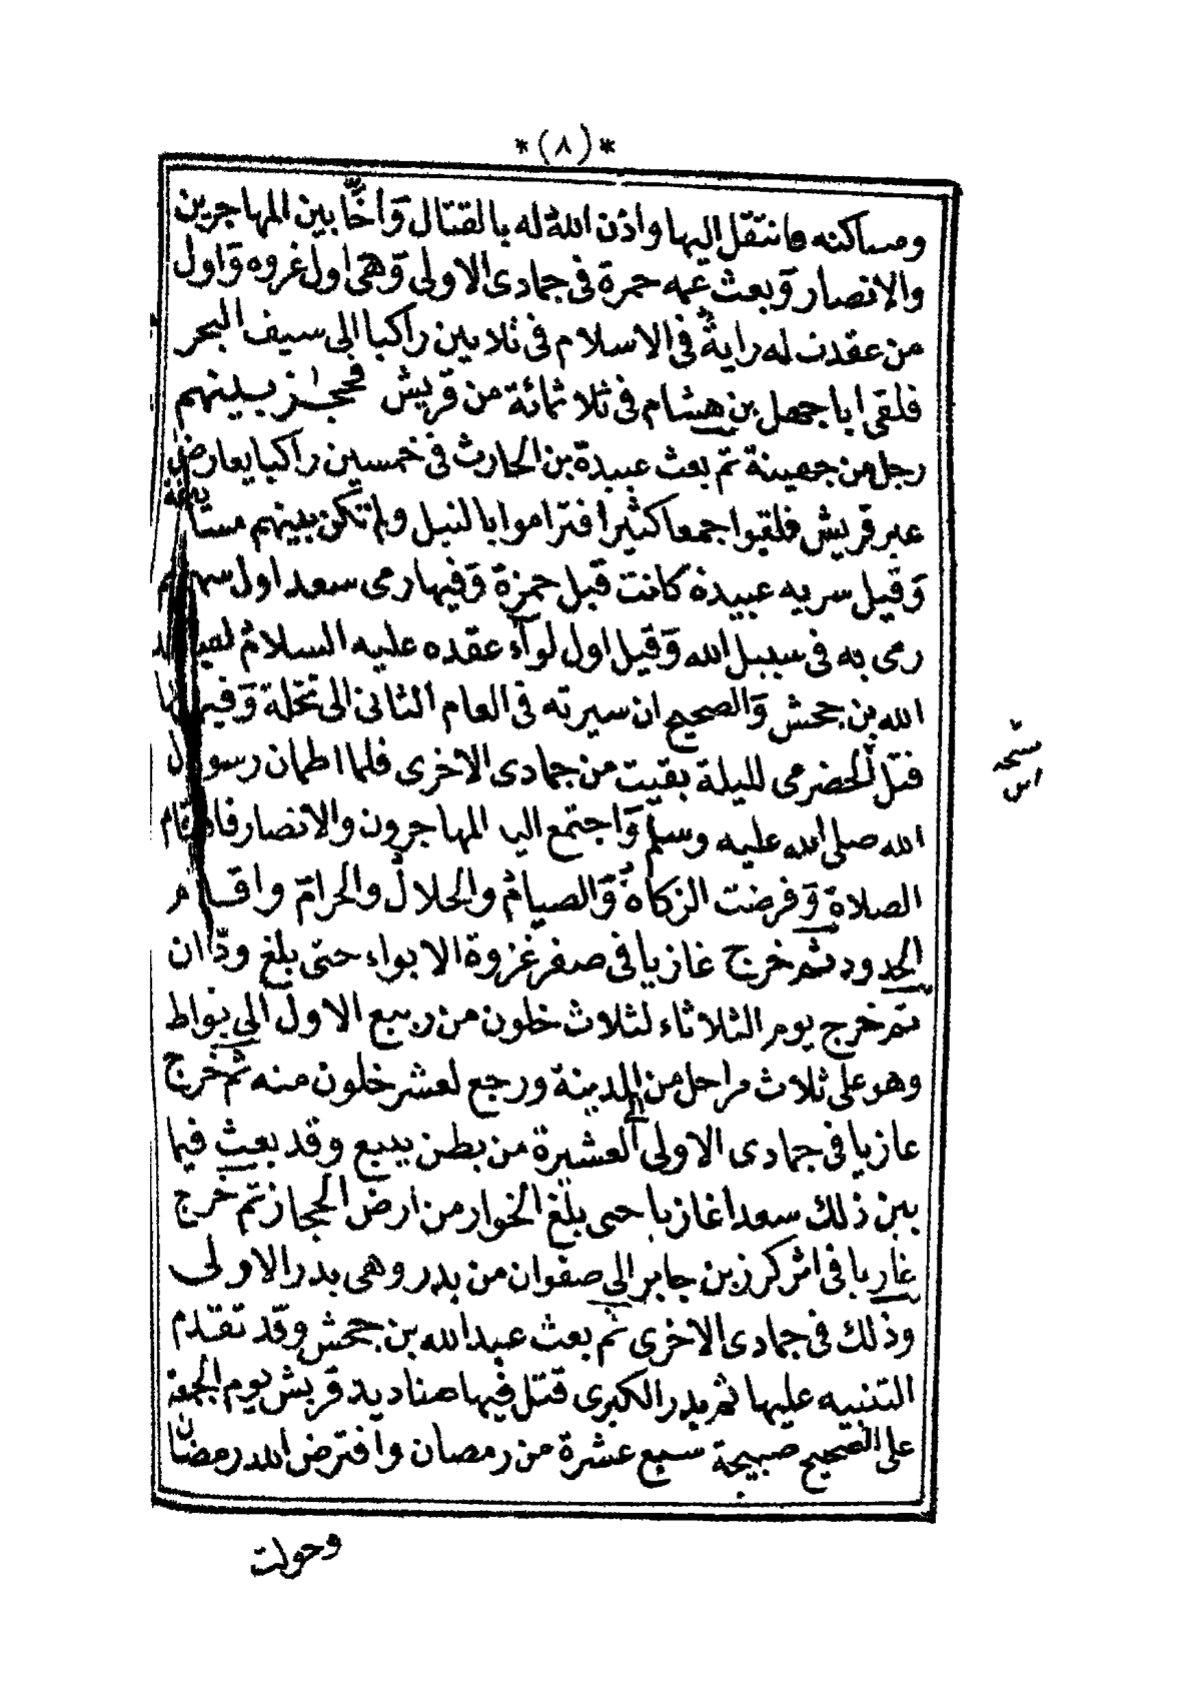 *(٨)*
ومساكنه فانتقل اليها واذن الله له بالقتال وَاخّا بين المهاجرين
والانصار وَبعث عمه حمزة فى جمادى الاولى وَهى اول غزوه وَاول
من عقدت له راية فى الاسلام فى ثلاثين راكبا الى سيف البحر
فلقى ابا جهل بن هشام فى ثلاثمائة من قريش فحجز بينهم
رجل من جهينة ثم بعث عبيدة بن الحارث فى خمسين راكبا يعارض
عير قريش فلقيوا جمعا كثيرا فتراموا بالنبل ولم تكن بينهم مسايفة
وَقيل سريه عبيدة كانت قبل حمزة وَفيها رمى سعد اول سهم
رمى به فى سبيل الله وَقيل اول لوآء عقده عليه السلام لعبد
الله بن جحش وَالصحيح ان سيرته فى العام الثانى الى نخلة وَفيها
قتل الحضرمى لليلة بقيت من جمادى الاخرى فلما اطمان رسول
الله صلى الله عليه وسلم وَاجتمع اليه المهاجرون والانصار فاقام
الصلاة وَفرضت الزكاة وَالصيام والحلال والحرام واقام
الحدود ثم خرج غازيا فى صفر غزوة الابواء حتى بلغ ودّان
ثم خرج يوم الثلاثاء لثلاث خلون من ربيع الاول الى بواط
وهو على ثلاث مراحل من المدينة ورجع لعشر خلون منه ثم خرج
غازيا فى جمادى الاولى الى العشيرة من بطن ينبع وقد بعث فيما
بين ذلك سعدا غازيا حتى بلغ الخوار من ارض الحجاز ثم خرج
غازيا فى اثر كرز بن جابر الى صفوان من بدر وهى بدر الاولى
وذلك فى جمادى الاخرى ثم بعث عبد الله بن جحش وقد تقدم
التنبيه عليها ثم بدر الكبرى قتل فيها صناديد قريش يوم الجمعة
على الصحيح صبيحة سبع عشرة من رمضان وافترض الله رمضان
وحولت